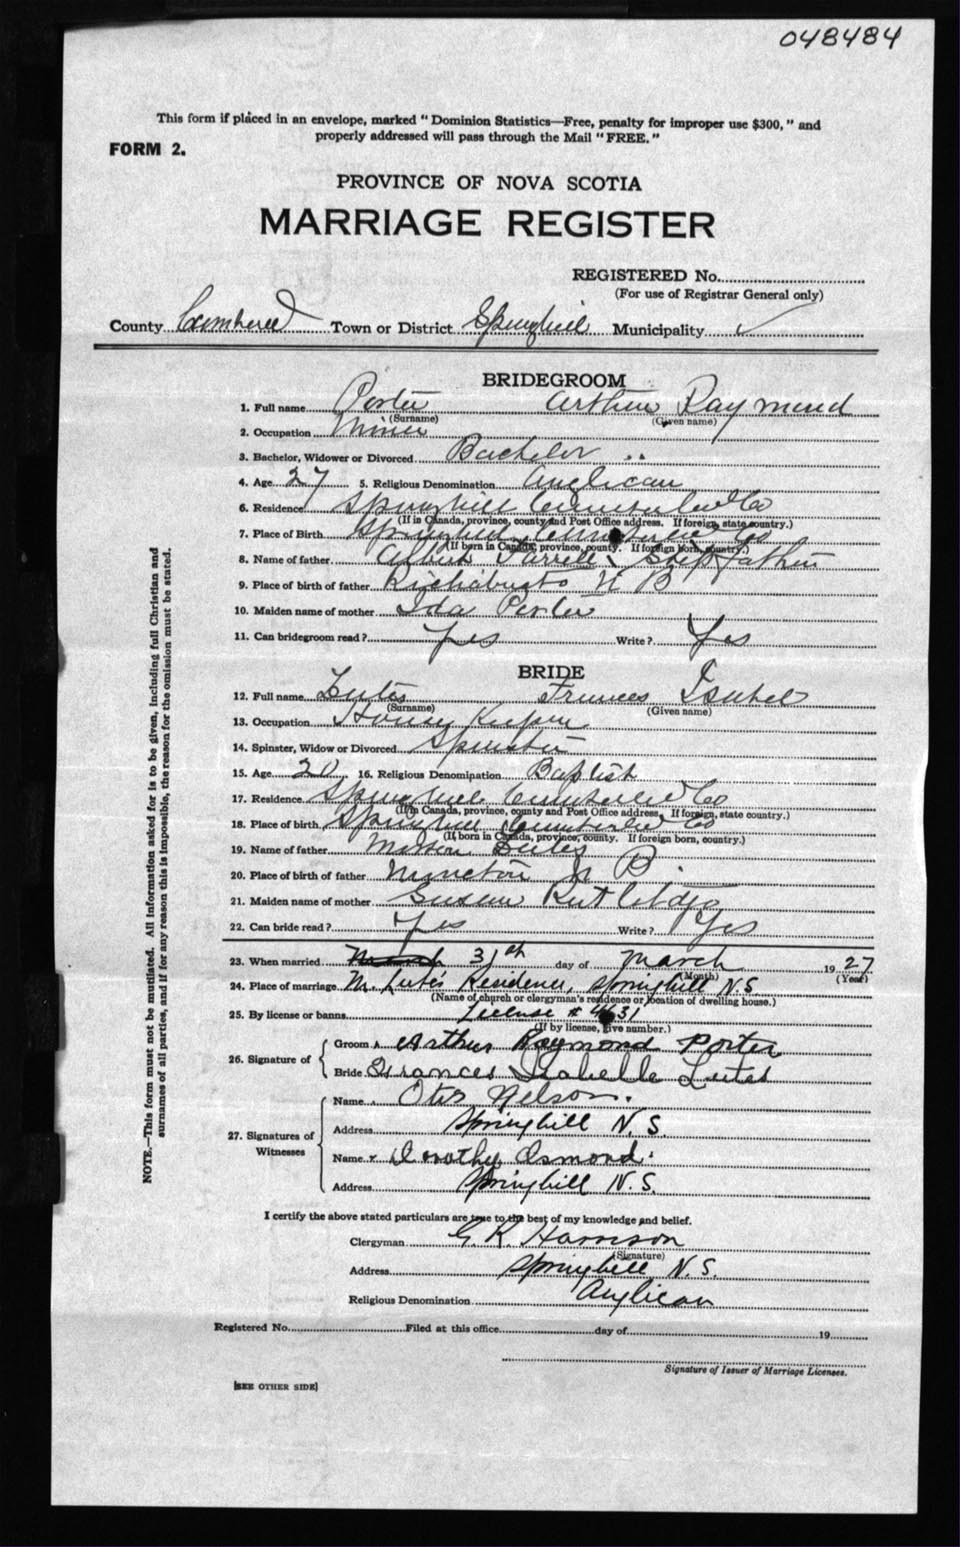 048484
This form if placed in an envelope, marked "Dominion Statistics—Free, penalty for improper use $300," and
properly addressed will pass through the Mail "FREE."
FORM 2.
PROVINCE OF NOVA SCOTIA
MARRIAGE REGISTER
REGISTERED No.
(For use of Registrar General only)
County Cumberland Town or District Springhill Municipality ✓
BRIDEGROOM
1. Full name Porter Arthur Raymond
(Surname) (Given name)
2. Occupation Miner
3. Bachelor, Widower or Divorced Bachelor
4. Age 27 5. Religious Denomination Anglican
6. Residence Springhill Cumberland Co
(If in Canada, province, county and Post Office address. If foreign, state country.)
7. Place of Birth Springhill Cumberland Co
(If born in Canada, province, county. If foreign born, country.)
8. Name of father Albert Stepfather
9. Place of birth of father Richabucto N B
10. Maiden name of mother Ida Porter
11. Can bridegroom read? Yes Write? Yes
BRIDE
12. Full name Lutes Frances Isabel
(Surname) (Given name)
13. Occupation House Keeper
14. Spinster, Widow or Divorced Spinster
15. Age 20 16. Religious Denomination Baptist
17. Residence Springhill Cumberland Co
(If in Canada, province, county and Post Office address, If foreign, state country.)
18. Place of birth Springhill Cumberland Co
(If born in Canada, province, county. If foreign born, country.)
19. Name of father Lutes
20. Place of birth of father Moncton N B
21. Maiden name of mother Susan Rutledge
22. Can bride read? Yes Write? Yes
23. When married March 31th day of March 1927
(Month) (Year)
24. Place of marriage M. Lutes Residence, Springhill N.S.
(Name of church or clergyman's residence or location of dwelling house.)
25. By license or banns License # 4631
(If by license, give number.)
26. Signature of
Groom Arthur Raymond Porter
Bride Frances Isabelle Lutes
27. Signatures of Witnesses
Name Otis Nelson.
Address Springhill N.S.
Name Dorothy Osmond.
Address Springhill N.S.
I certify the above stated particulars are true to the best of my knowledge and belief.
Clergyman G. R. Harrison
(Signature)
Address Springhill N.S.
Religious Denomination Anglican
Registered No. Filed at this office day of 19
Signature of Issuer of Marriage Licenses.
[SEE OTHER SIDE]
NOTE.—This form must not be mutilated. All information asked for is to be given, including full Christian and
surnames of all parties, and if for any reason this is impossible, the reason for the omission must be stated.